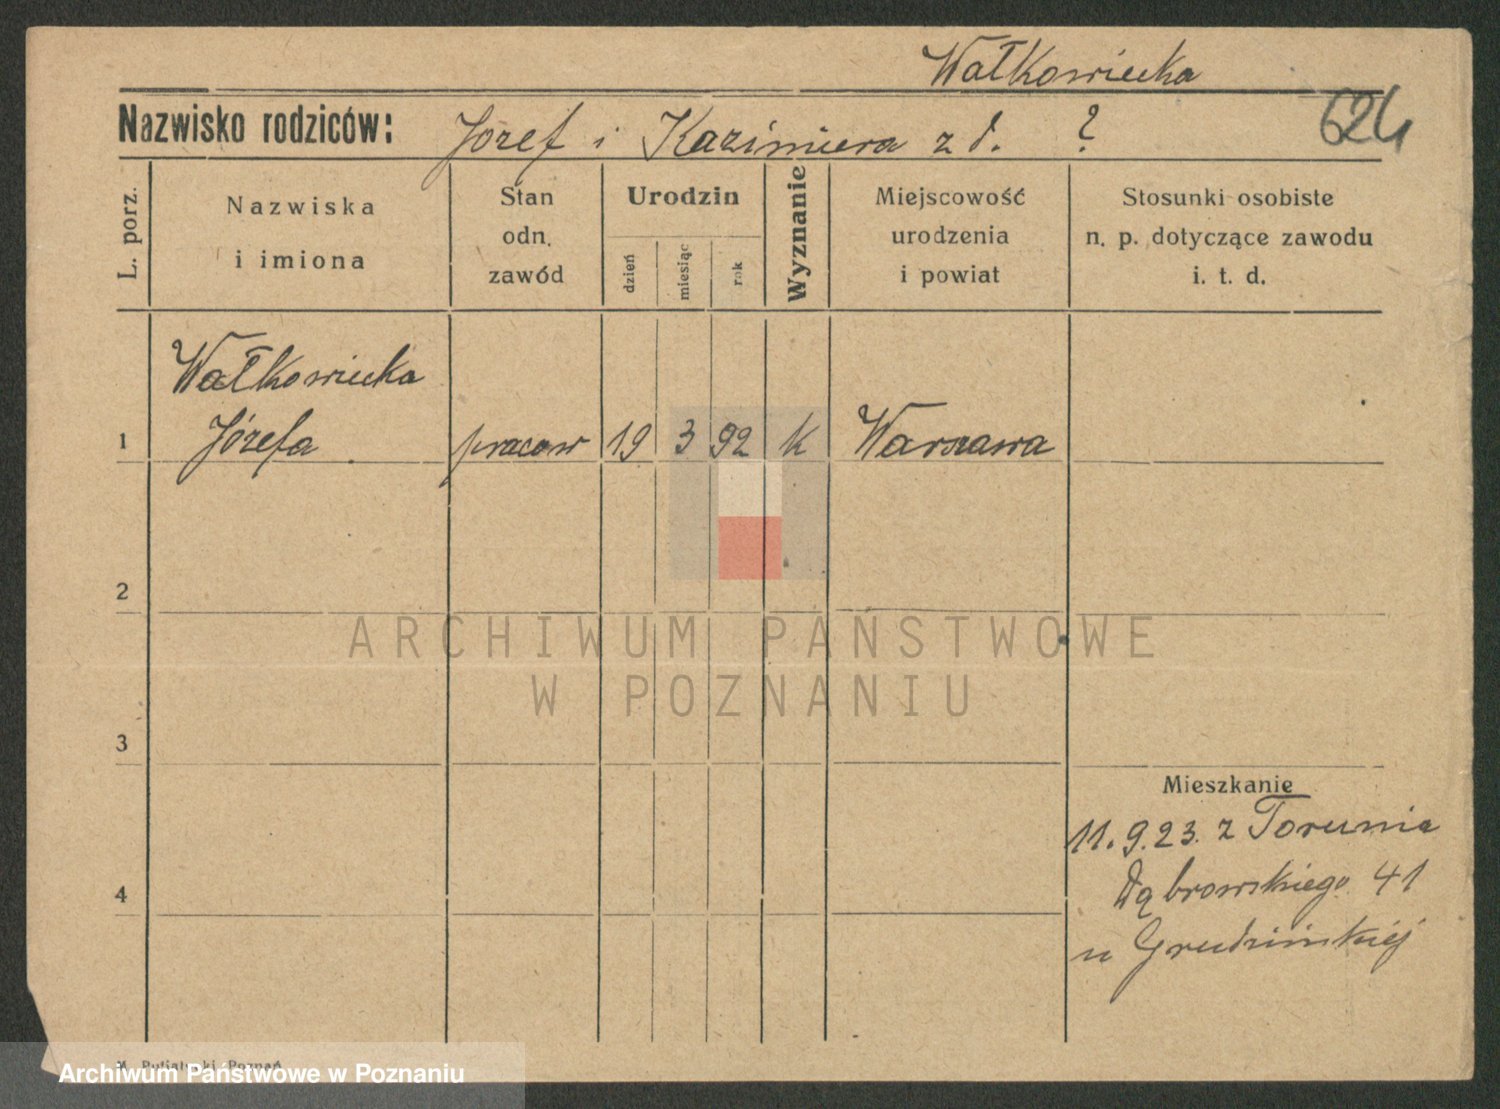 Wałkowiecka
Nazwisko rodziców: Józef i Kazimiera z d. ?
624
L. porz.
Nazwiska
i imiona
Stan
odn.
zawód
Urodzin
dzień
miesiąc
rok
Wyznanie
Miejscowość
urodzenia
i powiat
Stosunki osobiste
n. p. dotyczące zawodu
i. t. d.
Wałkowiecka
1 Józefa pracow 19 3 92 k Warszawa
2
ARCHIWUM PAŃSTWOWE
W POZNANIU
3
Mieszkanie
11.9.23. z Torunia
4 Dąbrowskiego 41
u Grudzińskiej
Archiwum Państwowe w Poznaniu